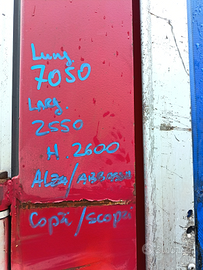 Lung
7050
Larg.
2550
H. 2600
ALZA/ABBASSA
Copri/scopri